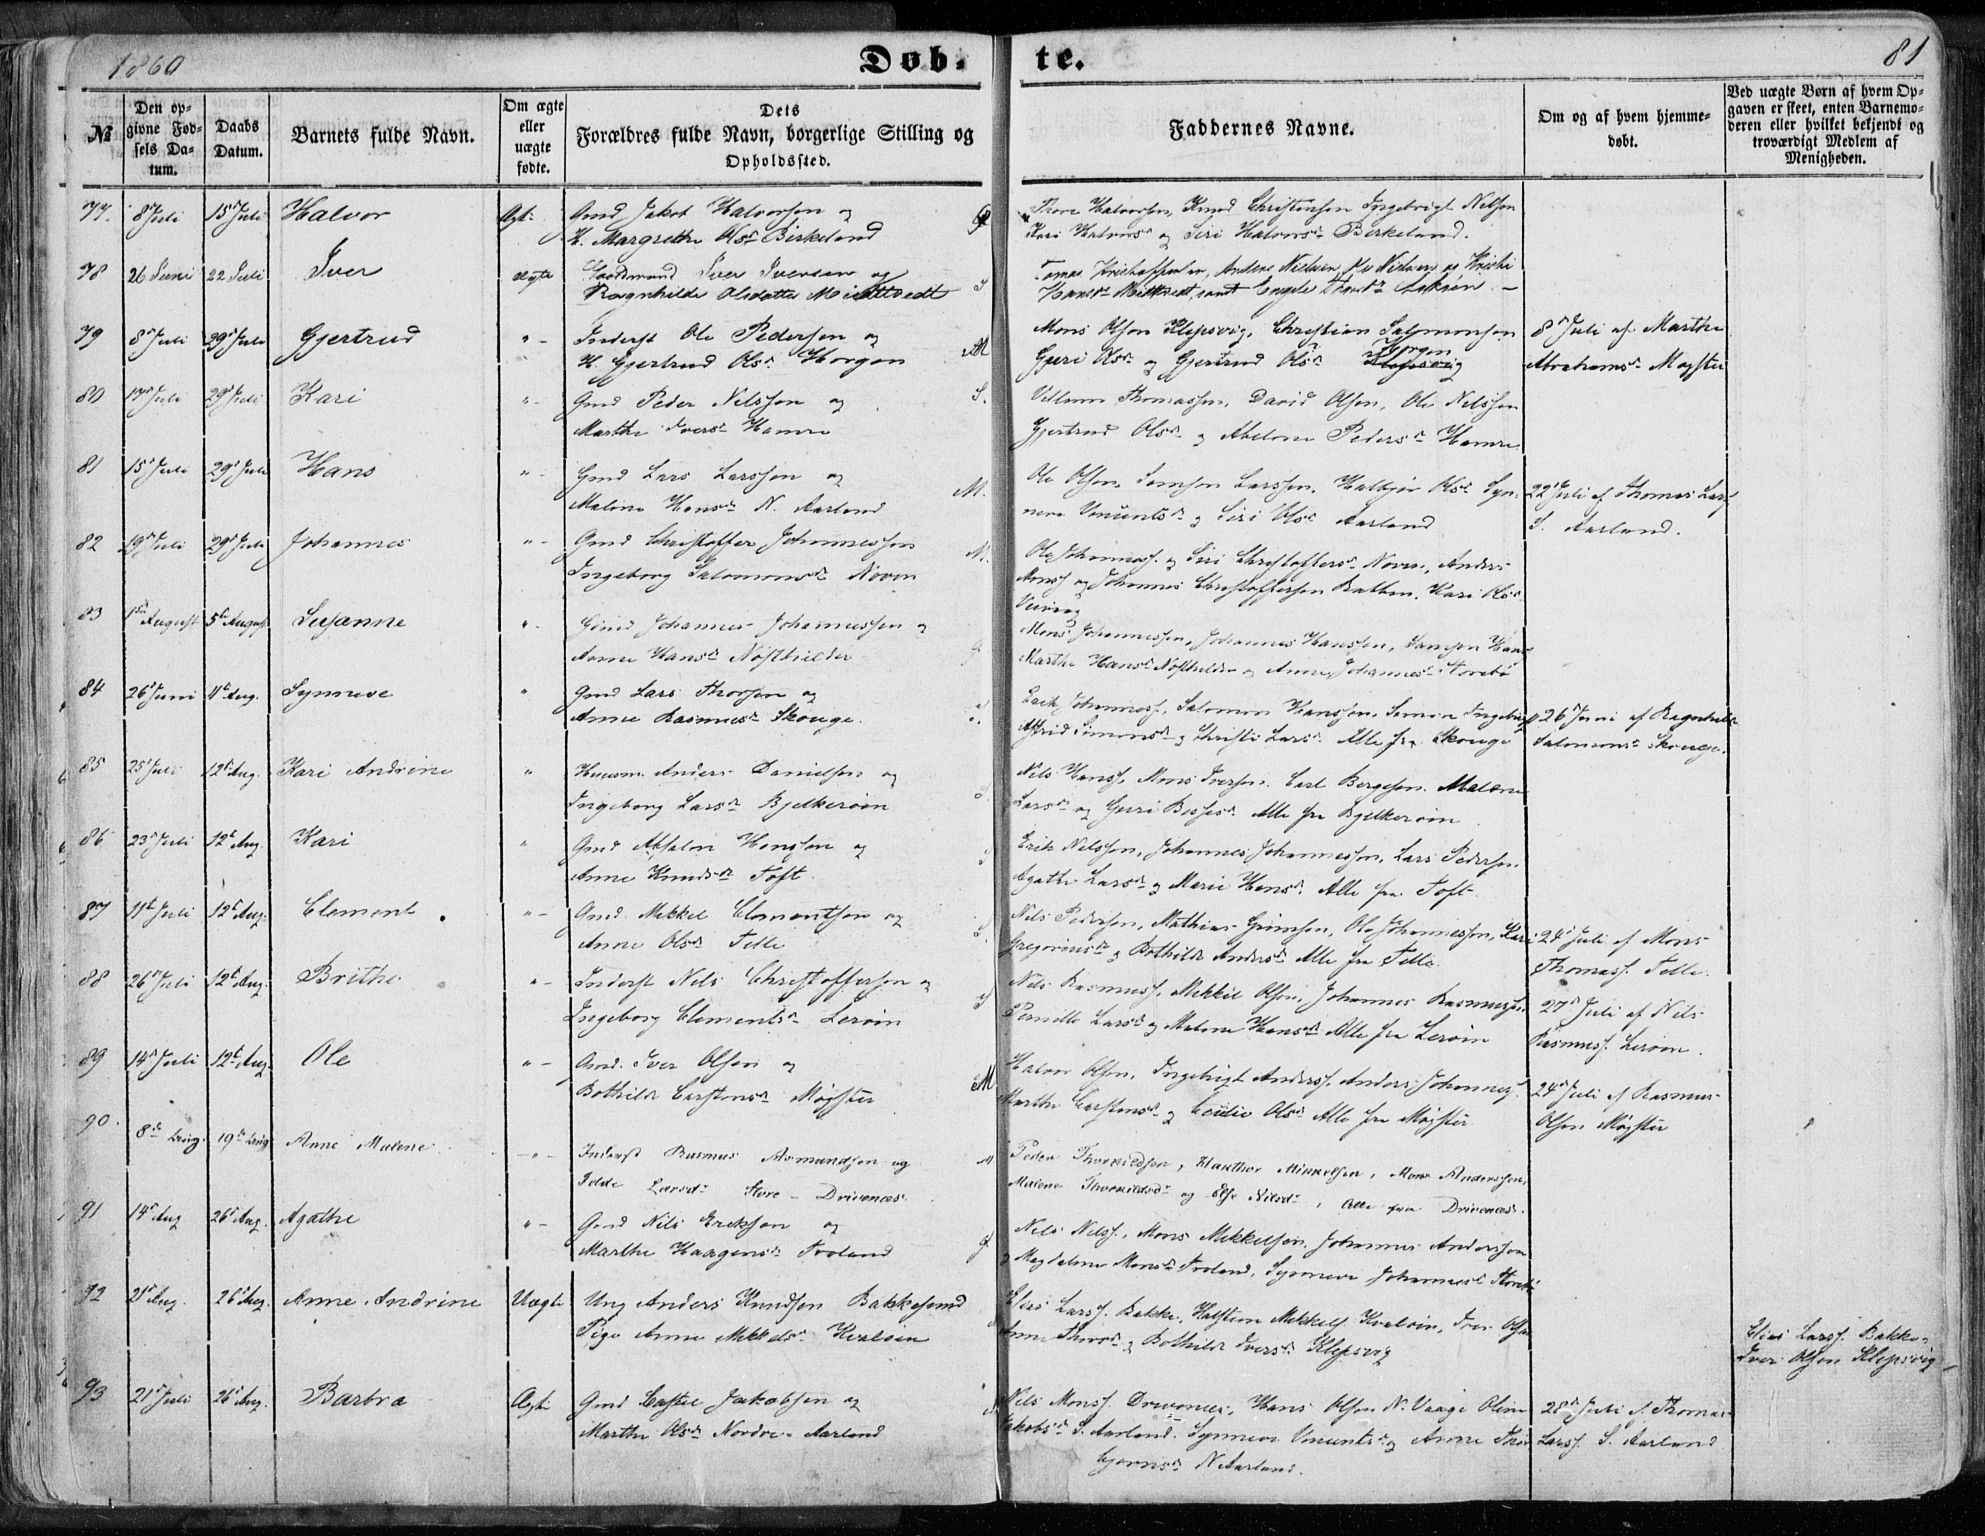 1860
Døb-
te.
81
№
Den op-
givne Fød-
sels Da-
tum.
Daabs
Datum.
Barnets fulde Navn.
Om ægte
eller
uægte
fødte.
Dets
Forældres fulde Navn, borgerlige Stilling og
Opholdssted.
Faddernes Navne.
Om og af hvem hjemme-
døbt.
Ved uægte Børn af hvem Op-
gaven er skeet, enten Barnemo-
deren eller hvilket bekjendt og
troværdigt Medlem af
Menigheden.
77. 8 Juli 15 Juli Halvor Ægte Gmd Jakob Halvorsen og
K. Margrethe Olsdr Birkeland
Thore Halvorsen, Knud Christensen Ingebrigt Nilsen
Kari Halvorsdr og Siri Halvorsdr Birkeland.
78 26 Juni 22 Juli Iver Ægte Gaardmand Iver Iversen og
Ragnhilde Olsdatter Midttvedt
Anders Nielsen,
Hansdr Midttvedt, samt Engele
79 8 Juli 29 Juli Gjertrud "- Inderst Ole Pedersen og
K. Gjertrud Olsdr Horgen
M
Mons Olsen Klepsvig, Christian Salomonsen
Guri Olsdr og Gjertrud Olsdr Horgen
Klepsvig
8 Juli af Marthe
Abrahamsdr Møgster
80 17 Juli 29 Juli Kari "- Gmd Peder Nilssen og
Marthe Iversdr Hamre
S.
Villum Thomassen, David Olsen, Ole Nilssen
Gjertrud Olsdr og Abelone Pedersdr Hamre
81 15 Juli 29 Juli Hans "- Gmd Lars Larssen og
Malene Hansdr N. Aarland
M.
Ole Olsen, Samson Larssen, Halbjør Olsdr Syn-
neve Vincentsdr og Siri Olsdr Aarland
22 Juli af Thomas Larss
S. Aarland.
82 19 Juli 29 Juli Johannes "- Gmd Christoffer Johannessen
Ingeborg Salomonsdr Noven
M.
Ole Johanness. og Siri Christoffersdr Noven, Anders
Monss og Johannes Christoffersen Kari Olsdr
83 1ste August 5te August Susanne "- Gmd Johannes Johannessen og
Anne Hansdr Nøstbilder
Mons Johannessen, Johannes Hanssen, Samson Hans
Marthe Hansdr og Anne Johannesdr Storebø
84 26 Juni 11te Aug. Synneve " Gmd Lars Thorsen og
Anne Rasmusdr Skouge.
Erik Johanness. Salomon Hanssen, Simon
Astrid Simonsdr og Christi Larsdr Alle fra Skouge
26 Juni af Ragnhild
Salomonsdr Skouge.
85 25 Juli 12te Aug. Kari Andrine " Huusm. Anders Danielsen og
Ingeborg Larsdr Bjelkerøen
Nils Hanss, Mons Iversen. Carl Børgesen. Malene
Larsdr og Guri Alle fra Bjelkerøen
86 23 Juli 12te Aug. Kari " Gmd Absalon Hanssen og
Anne Knudsdr Toft.
Erik Nilssen, Johannes Johannessen, Lars Pedersen
Agathe Larsdr og Marie Hansdr. Alle fra Toft.
87 11te Juli 12te Aug. Clement "- Gmd. Mikkel Clementsen og
Anne Olsdr Telle
Nils Pedersen, Mathias Grimsen, Ole Johannessen, Kari
Gregoriusdr og Bothilde Andersdr Alle fra Telle.
24 Juli af Mons
Thomass. Telle.
88 26 Juli 12te Aug. Brithe "- Inderst Nils Christoffersen og
Ingeborg Clementsdr Lerøen
Nils Rasmuss. Mikkel Olsen, Johannes Rasmussen
Pernille Larsdr og Malene Hansdr Alle fra Lerøen
27 Juli af Nils
Rasmuss. Lerøen.
89 14 Juli 12te Aug. Ole "- Gmd. Iver Olsen og
Bothilde Carstensdr Møgster
M
Halvor Olsen, Ingebrigt Anderss. Anders Johanness.
Marthe Carstensdr og Cecilie Olsdr Alle fra Møgster
24 Juli af Rasmus
Olsen Møgster
90. 8de Aug. 19de Aug. Anne Malene -"- Inderst Rasmus Asmundsen og
Idde Larsdr Store-Drivenæs
M
Peder Thorkildsen, Mikkelsen, Mons Anderssen,
Malene Thorkildsdr og Else Nilsdr, Alle fra Drivenæs.
91 14 Aug 26 Aug. Agathe "- Gmd Nils Eriksen og
Marthe Haagensdr Troland
Nils Nilss., Mons Mikkelsen. Johannes Anderssen
og Magdalene Monsdr Troland, Synneve Johannesdr Storebø
92 21 Aug. 26 Aug. Anne Andrine Uægte Ung. Anders Knudsen Bakkesund
Pige Anne Mikkelsdr Kvaløen
Elias Larss. Bakke. Halsteen Mikkels Kvaløen, Iver Olsen
Anne Thorsdr og Bothilde Iversdr Klepsvig
Elias Larss. Bakke.
Iver Olsen Klepsvig
93 21 Juli 26 Aug. Barbra Ægte Gmd Castel Jakobsen og
Marthe Olsdr Nordre-Aarland
Nils Monss. Drivenes, Hans Olsen N. Vaage Oline
Jakobsdr S. Aarland. Synneve Vincentsdr og Anne Thor-
bjørnsdr N. Aarland.
28 Juli af Thomas
Larss. S. Aarland